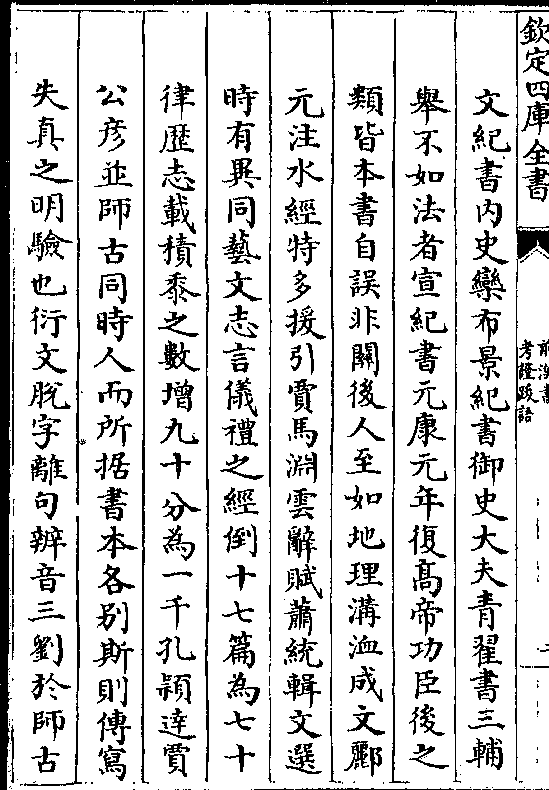 欽定四庫全書
前漢書
考證跋語
文紀書内史欒布景紀書御史大夫青翟書三輔
舉不如法者宣紀書元康元年復髙帝功臣後之
類皆本書自誤非闗後人至如地理溝洫成文酈
元注水經特多援引賈馬淵雲辭賦蕭統輯文選
時有異同藝文志言儀禮之經倒十七篇為七十
律歴志載積黍之數增九十分為一千孔穎逹賈
公彦並師古同時人而所据書本各别斯則傳寫
失真之明驗也衍文脱字離句辨音三劉於師古